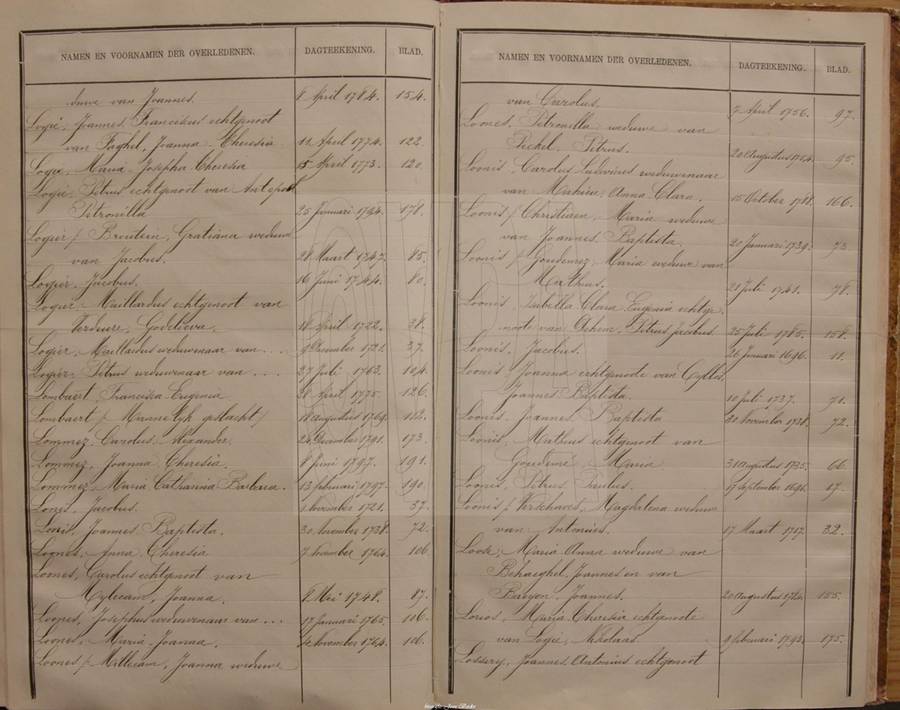 NAMEN EN VOORNAMEN DER OVERLEDENEN. DAGTEEKENING. BLAD.
duwe van Joannes. 8 April 1784. 154.
Logié, Joannes Franciskus echtgenoot
van Faghel, Joanna Theresia 11 April 1774. 122.
Logie, Maria Josepha Theresia 15 April 1773. 120.
Logie, Petrus echtgenoot van
Petronilla 25 Januari 1794. 178.
Logier / Broutein, Gratiana weduwe
van Jacobus. 28 Maart 1747. 85.
Logier, Jacobus. 16 Juni 1744. 80.
Logier, Maillardus echtgenoot van
Verdure, Godelieva. 18 April 1722. 38.
Logier, Maillardus weduwenaar van ... 9 December 1721. 37.
Logier, Petrus weduwenaar van ... 27 Juli 1763. 104.
Lombaert, Francisca Eugenia 8 April 1775. 126.
Lombaert / Mannelyk geslacht / 18 augustus 1769. 112.
Lommez, Carolus Alexander. 24 December 1791. 173.
Lommez, Joanna Theresia. 8 Juni 1797. 191.
Lommez, Maria Catharina Barbara. 13 februari 1797. 190.
Jacobus. 1 november 1721. 37.
Lonis, Joannes Baptista. 30 November 1738. 72.
Loones, Anna Theresia 7 november 1764. 106.
Loones, Carolus echtgenoot van
Mylecam, Joanna. 8 Mei 1748. 87.
Loones, Josephus weduwenaar van ... 17 januari 1765. 106.
Loones, Maria Joanna. november 1764. 106.
Loones / Millecam, Joanna weduwe
NAMEN EN VOORNAMEN DER OVERLEDENEN. DAGTEEKENING. BLAD.
van Carolus. 7 April 1756. 97.
Loones, Petronilla weduwe van
Pickel, Petrus. 20 augustus 1754. 95.
Loonis, Carolus Ludovicus weduwenaar
van Mahieu, Anna Clara. 15 October 1788. 166.
Loonis / Christiaen, Maria weduwe
van Joannes Baptista 20 Januari 1739. 73
Loonis / Goudenrez, Maria weduwe van
Mathias. 21 Juli 1741. 78.
Loonis, Isabella Clara Eugenia echtge-
noote van Petrus Jacobus. 25 Juli 1785. 158.
Loonis, Jacobus. 26 Januari 1696. 11.
Loonis, Joanna echtgenoote van
Joannes Baptista. 10 Juli 1737. 71.
Loonis, Joannes Baptista 30 november 1738. 72.
Loonis, Mathias echtgenoot van
Maria 31 augustus 1735. 66.
Loonis, Petrus Paulus. 19 September 1696. 17.
Loonis / Verschaeve, Magdalena weduwe
van Antonius. 17 Maart 1717. 32.
Loose, Maria Anna weduwe van
Behaeghel, Joannes en van
Joannes. 20 augustus 155.
Loros, Maria Theresia echtgenoote
van Logie, Nicolaas 9 februari 1793. 175.
Lossery, Joannes Antonius echtgenoot